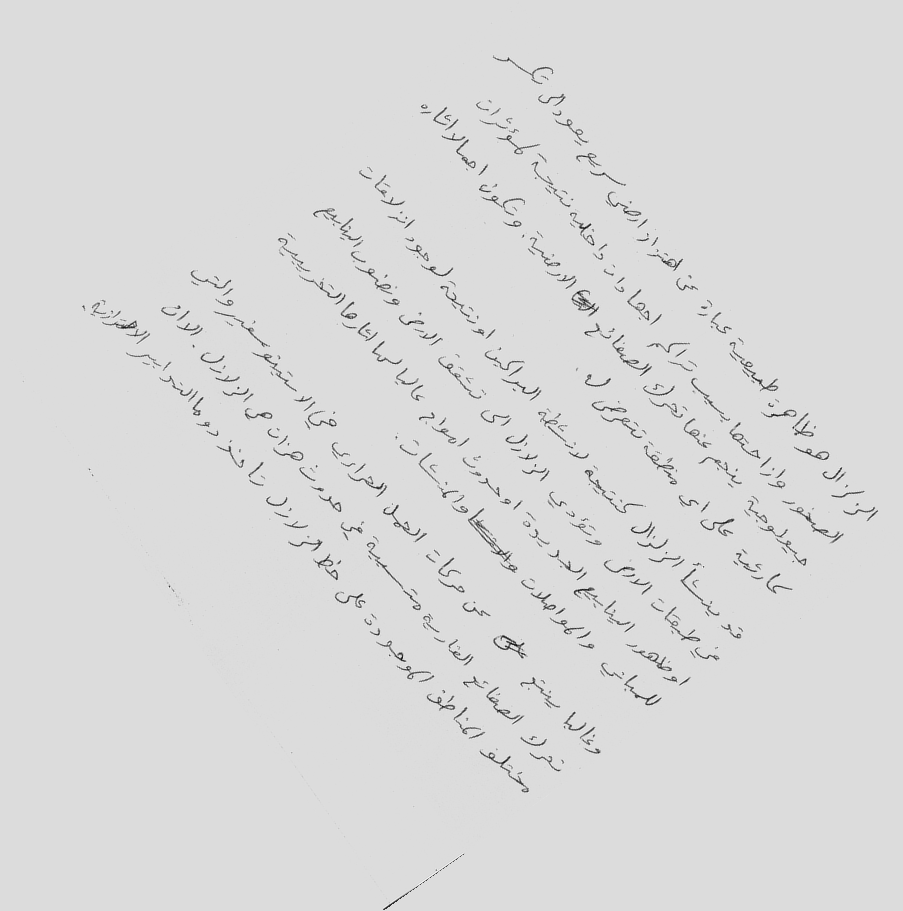 الزلزال هو ظاهرة طبيعية عبارة عن اهتزاز ارضي سريع يعود الى تكسر
الصخور وازاحتها بسبب تراكم اجهادات داخلية نتيجة لمؤثرات
جيولوجية ينجم عنها تحرك الصفائح الارضية. وتكون اجمالا اثاره
كارثية على اي منطقة تتعرض ل.
قد ينشأ الزلزال كنتيجة لانشطة البراكين او نتيجة لوجود انزلاقات
في طبقات الارض وتؤدي الزلازل الى تشقق الارض ونضوب الينابيع
او ظهور الينابيع الجديدة او حدوث امواج عالية لها اثارها التخريبية
للمباني والمواصلات والمنشات.
وغالبا ينتج عن حركات الحمل الحراري في الاستينوسفير والتي
تحرك الصفائح القارية متسببة في حدوث هزات هي الزلازل. الان
مختلف المناطق الموجودة على خط الزلازل تأخذ دوما التدابير الاحترازية.